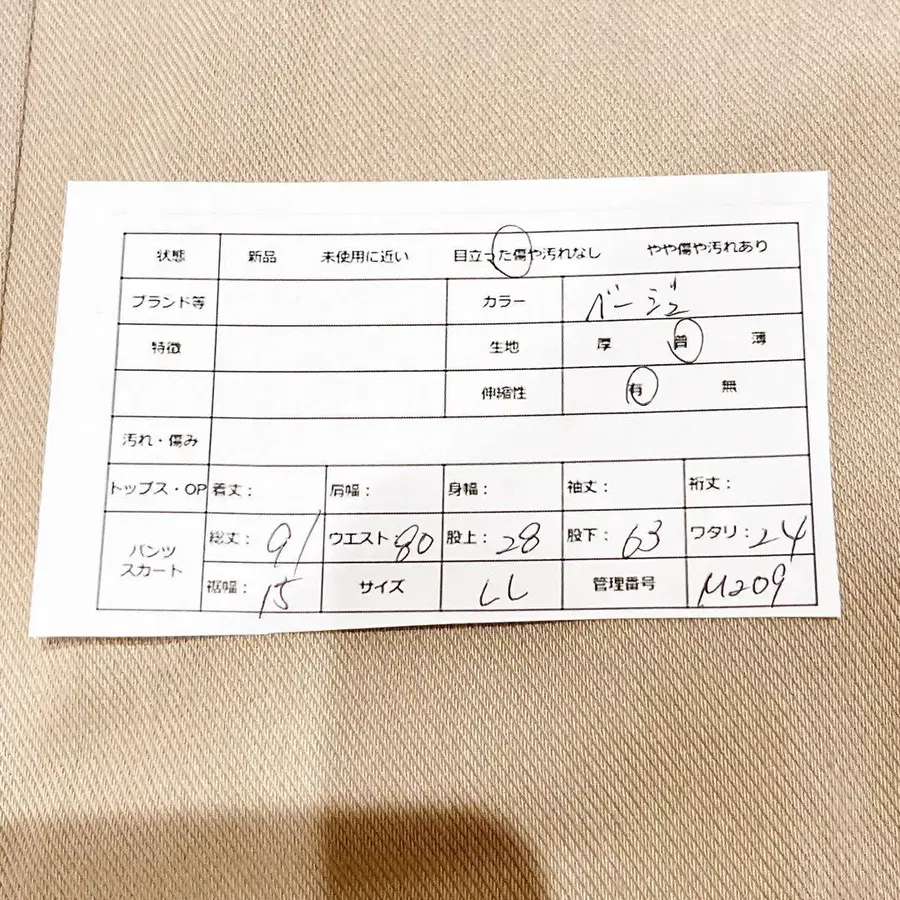 状態 新品 未使用に近い 目立った傷や汚れなし やや傷や汚れあり
ブランド等 カラー ベージュ
特徴 生地 厚 普 薄
伸縮性 有 無
汚れ・傷み
トップス・OP 着丈： 肩幅： 身幅： 袖丈： 裄丈：
パンツ スカート 総丈：91 ウエスト 80 股上：28 股下：63 ワタリ：24
裾幅：15 サイズ LL 管理番号 M209